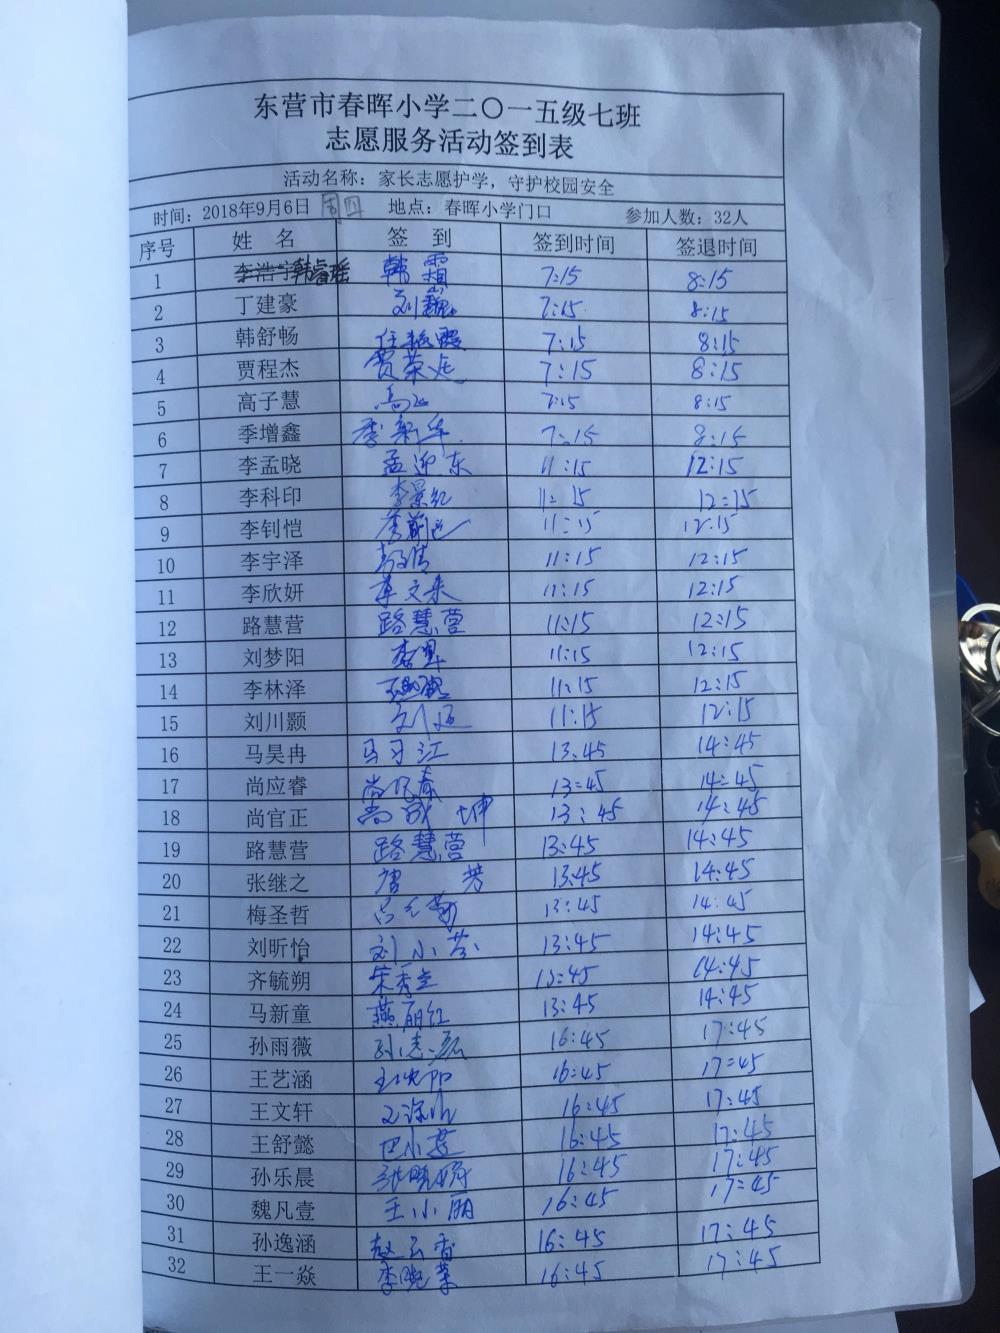 东营市春晖小学二〇一五级七班
志愿服务活动签到表
活动名称：家长志愿护学，守护校园安全
时间：2018年9月6日 周四 地点：春晖小学门口 参加人数：32人
序号 姓 名 签 到 签到时间 签退时间
1 李浩宇 韩睿瑶 韩霜 7:15 8:15
2 丁建豪 刘巍 7:15 8:15
3 韩舒畅 7:15 8:15
4 贾程杰 贾荣庭 7:15 8:15
5 高子慧 7:15 8:15
6 季增鑫 季新华 7:15 8:15
7 李孟晓 孟迎东 11:15 12:15
8 李科印 李景纪 11:15 12:15
9 李钊恺 11:15 12:15
10 李宇泽 11:15 12:15
11 李欣妍 11:15 12:15
12 路慧营 路慧营 11:15 12:15
13 刘梦阳 11:15 12:15
14 李林泽 11:15 12:15
15 刘川颢 11:15 12:15
16 马昊冉 马习江 13:45 14:45
17 尚应睿 13:45 14:45
18 尚官正 13:45 14:45
19 路慧营 路慧营 13:45 14:45
20 张继之 唐芳 13:45 14:45
21 梅圣哲 13:45 14:45
22 刘昕怡 刘小芬 13:45 14:45
23 齐毓朔 13:45 14:45
24 马新童 燕丽红 13:45 14:45
25 孙雨薇 16:45 17:45
26 王艺涵 16:45 17:45
27 王文轩 16:45 17:45
28 王舒懿 巴小燕 16:45 17:45
29 孙乐晨 16:45 17:45
30 魏凡壹 王小丽 16:45 17:45
31 孙逸涵 赵云香 16:45 17:45
32 王一焱 李晓菜 16:45 17:45